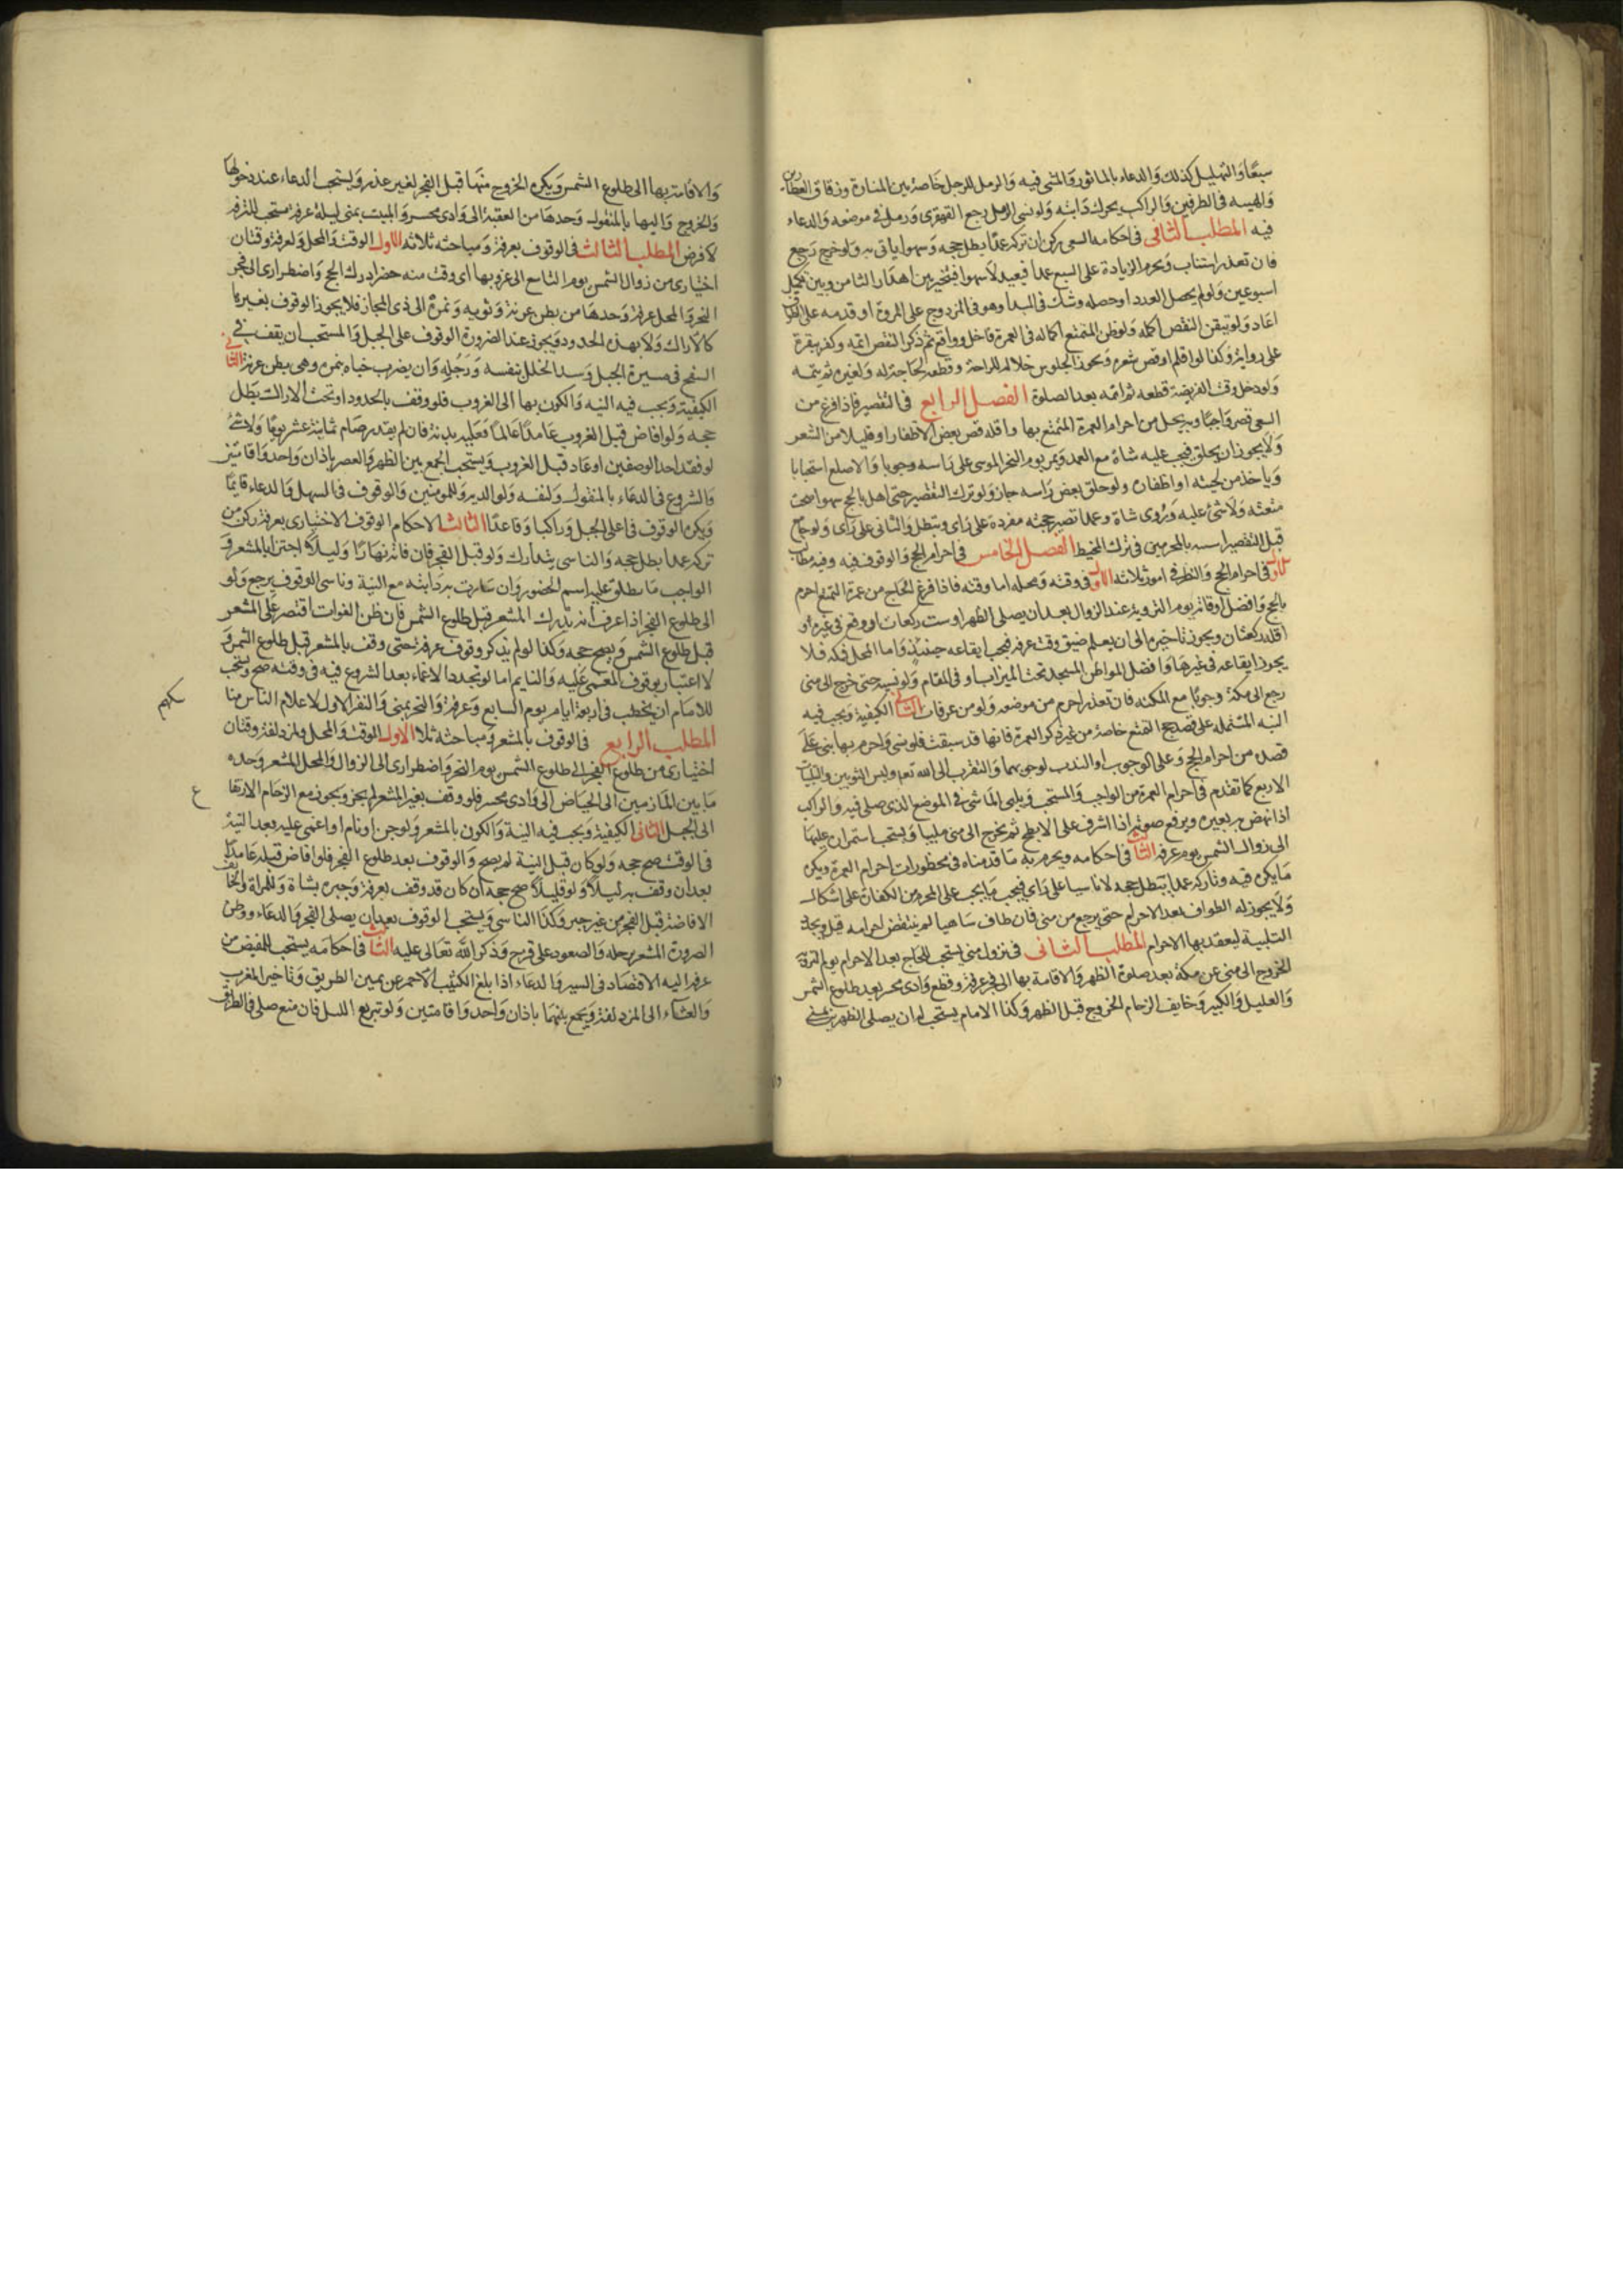 سبعا والتهليل كذلك والدعاء بالماثور والمشي فيه والرمل للرجل خاصة بين المنارة وزقاق العطارين
والهينة في الطرفين والراكب يحرك دابته ولو نسي الرمل رجع القهقرى ورمل في موضعه والدعاء
فيه المطلب الثاني في احكامه السعي ركن ان تركه عمدا بطل حجه وسهوا ياتي به ولو خرج رجع
فان تعذر استناب ويحرم الزيادة على السبع عمدا فيعيد لا سهوا فيتخير بين اهدار الثامن وبين تكميل
اسبوعين ولو لم يحصل العدد او حصله وشك في المبدا وهو في المزدوج على المروة او قدمه على الطواف
اعاد ولو تيقن النقص اكمله ولو ظن المتمتع اكماله في العمرة فاحل وواقع ثم ذكر النقص اتمه وكفر ببقرة
على رواية وكذا لو اقلم او قص شعره ويجوز الجلوس خلاله للراحة وقطعه لحاجة له ولغيره ثم يتمه
ولو دخل وقت الفريضة قطعه ثم اتمه بعد الصلوة الفصل الرابع في التقصير فاذا فرغ من
السعي قصر واجبا وبه يحل من احرام العمرة المتمتع بها واقله قص بعض الاظفار او قليلا من الشعر
ولا يجوز ان يحلق فيجب عليه شاة مع العمد ويمر يوم النحر الموسى على راسه وجوبا والاصلع استحبابا
وياخذ من لحيته او اظفاره ولو حلق بعض راسه جاز ولو ترك التقصير حتى اهل بالحج سهوا صحت
متعته ولا شئ عليه وروى شاة وعمدا تصير حجته مفردة على راى وبتطل والثاني على راى ولو جامع
قبل التقصير اسبه بالمحرمين في ترك المخيط الفصل الخامس في احرام الحج والوقوف فيه وفيه مطالب
الاول في احرام الحج والنظر في امور ثلاثة الاول في وقته ومحله اما وقته فاذا فرغ الحاج من عمرة التمتع احرم
بالحج وافضل اوقاته يوم التروية عند الزوال بعد ان يصلي الظهر او ست ركعات او وقع في غيره او
اقله ركعتان ويجوز تاخيره الى ان يعلم ضيق وقت عرفة فيجب ايقاعه حينئذ واما المحل فمكة فلا
يجوز ايقاعه في غيرها وافضل المواطن المسجد تحت الميزاب او في المقام ولو نسيه حتى خرج الى منى
رجع الى مكة وجوبا مع المكنه فان تعذر احرم من موضعه ولو من عرفات الثاني الكيفية ويجب فيه
النيه المشتملة على قصد حج التمتع خاصة من غير ذكر العمرة فانها قد سبقت فلو نسي واحرم بها بنى على
قصده من احرام الحج وعلى الوجوب او الندب لوجوبهما والتقرب الى الله تعالى ولبس الثوبين والتلبيات
الاربع كما تقدم في احرام العمرة من الواجب والمستحب ويلبي الماشي في الموضع الذي صلى فيه والراكب
اذا نهض به بعيره ويرفع صوته اذا اشرف على الابطح ثم يخرج الى منى ملبيا ويستحب استمراره عليها
الى زوال الشمس يوم عرفة الثالث في احكامه ويحرم به ما قدمناه في محظورات احرام العمرة ويكره
ما يكره فيه وتاركه عمدا يبطل حجه لا ناسيا على راى فيجب ما يجب على المحرم من الكفارة على اشكال
ولا يجوز له الطواف بعد الاحرام حتى يرجع من منى فان طاف ساهيا لم ينتقض احرامه قيل ويجدد
التلبية ليعقد بها الاحرام المطلب الثاني في نزول منى يستحب للحاج بعد الاحرام يوم التروية
الخروج الى منى من مكة بعد صلوة الظهر والاقامة بها الى فجر عرفة وقطع وادى محسر بعد طلوع الشمس
والعليل والكبير وخايف الزحام الخروج قبل الظهر وكذا الامام يستحب له ان يصلي الظهرين بمنى
والاقامة بها الى طلوع الشمس ويكره الخروج منها قبل الفجر لغير عذر ويستحب الدعاء عند دخولها
والخروج واليها بالمنقول وحدها من العقبة الى وادى محسر والمبيت بمنى ليلة عرفة مستحب للترفه
لا فرض المطلب الثالث في الوقوف بعرفة ومباحثه ثلاثة الاول الوقت والمحل ولعرفة وقتان
اختيارى من زوال الشمس يوم التاسع الى غروبها اى وقت منه حضر ادرك الحج واضطرارى الى فجر
النحر والمحل عرفة وحدها من بطن عرنة وثويه ونمرة الى ذى المجاز فلا يجوز الوقوف بغيرها
كالاراك ولا بهذه الحدود ويجوز عند الضرورة الوقوف على الجبل والمستحب ان يقف في
السفح في ميسرة الجبل وسد الخلل بنفسه ورحله وان يضرب خباه بنمرة وهي بطن عرنة الثاني
الكيفية ويجب فيه النيه والكون بها الى الغروب فلو وقف بالحدود او تحت الاراك بطل
حجه ولو افاض قبل الغروب عامدا عالما فعليه بدنة فان لم يقدر صام ثمانية عشر يوما ولا شئ
لو فقد احد الوصفين او عاد قبل الغروب ويستحب الجمع بين الظهر والعصر باذان واحد واقامتين
والشروع في الدعاء بالمنقول ولنفسه ولوالديه وللمومنين والوقوف في السهل والدعاء قائما
ويكره الوقوف في اعلى الجبل وراكبا وقاعدا الثالث الاحكام الوقوف الاختيارى بعرفة ركن من
تركه عمدا بطل حجه والناسي يتدارك ولو قبل الفجر فان فاته نهارا وليلا اجتزا بالمشعر و
الواجب ما يطلق عليه اسم الحضور وان سارت به دابته مع النية وناسي الوقوف يرجع ولو
الى طلوع الفجر اذا عرف انه يدرك المشعر قبل طلوع الشمس فان ظن الفوات اقتصر على المشعر
قبل طلوع الشمس ويصح حجه وكذا لو لم يذكر وقوف عرفة حتى وقف بالمشعر قبل طلوع الشمس و
لا اعتبار بوقوف المغمى عليه والنايم اما لو تجدد الاغماء بعد الشروع فيه في وقته صح ويستحب
للامام ان يخطب في اربعة ايام يوم السابع وعرفة والنحر بمنى والنفر الاول لاعلام الناس منا
سكهم
المطلب الرابع في الوقوف بالمشعر ومباحثه ثلاثة الاول الوقت والمحل ولمزدلفة وقتان
اختيارى من طلوع الفجر الى طلوع الشمس يوم النحر واضطرارى الى الزوال والمحل المشعر وحده
ما بين المازمين الى الحياض الى وادى محسر فلو وقف بغير المشعر لم يجز ويجوز مع الزحام الارتفا
ع
الى الجبل الثاني الكيفية ويجب فيه النية والكون بالمشعر ولو جن او نام او اغمى عليه بعد النية
في الوقت صح حجه ولو كان قبل النية لم يصح والوقوف بعد طلوع الفجر فلو افاض قبله عامدا
بعد ان وقف به ليلا ولو قليلا صح حجه ان كان قد وقف بعرفة وجبره بشاة وللمراة والخايف
الافاضة قبل الفجر من غير جبر وكذا الناسي ويستحب الوقوف بعد ان يصلي الفجر والدعاء ووطئ
الصرورة المشعر برجله والصعود على قزح وذكر الله تعالى عليه الثالث في احكامه يستحب للمفيض من
عرفة اليه الاقتصاد في السير والدعاء اذا بلغ الكثيب الاحمر عن يمين الطريق وتاخير المغرب
والعشاء الى المزدلفة ويجمع بينهما باذان واحد واقامتين ولو تربع الليل فان منع صلى في الطريق